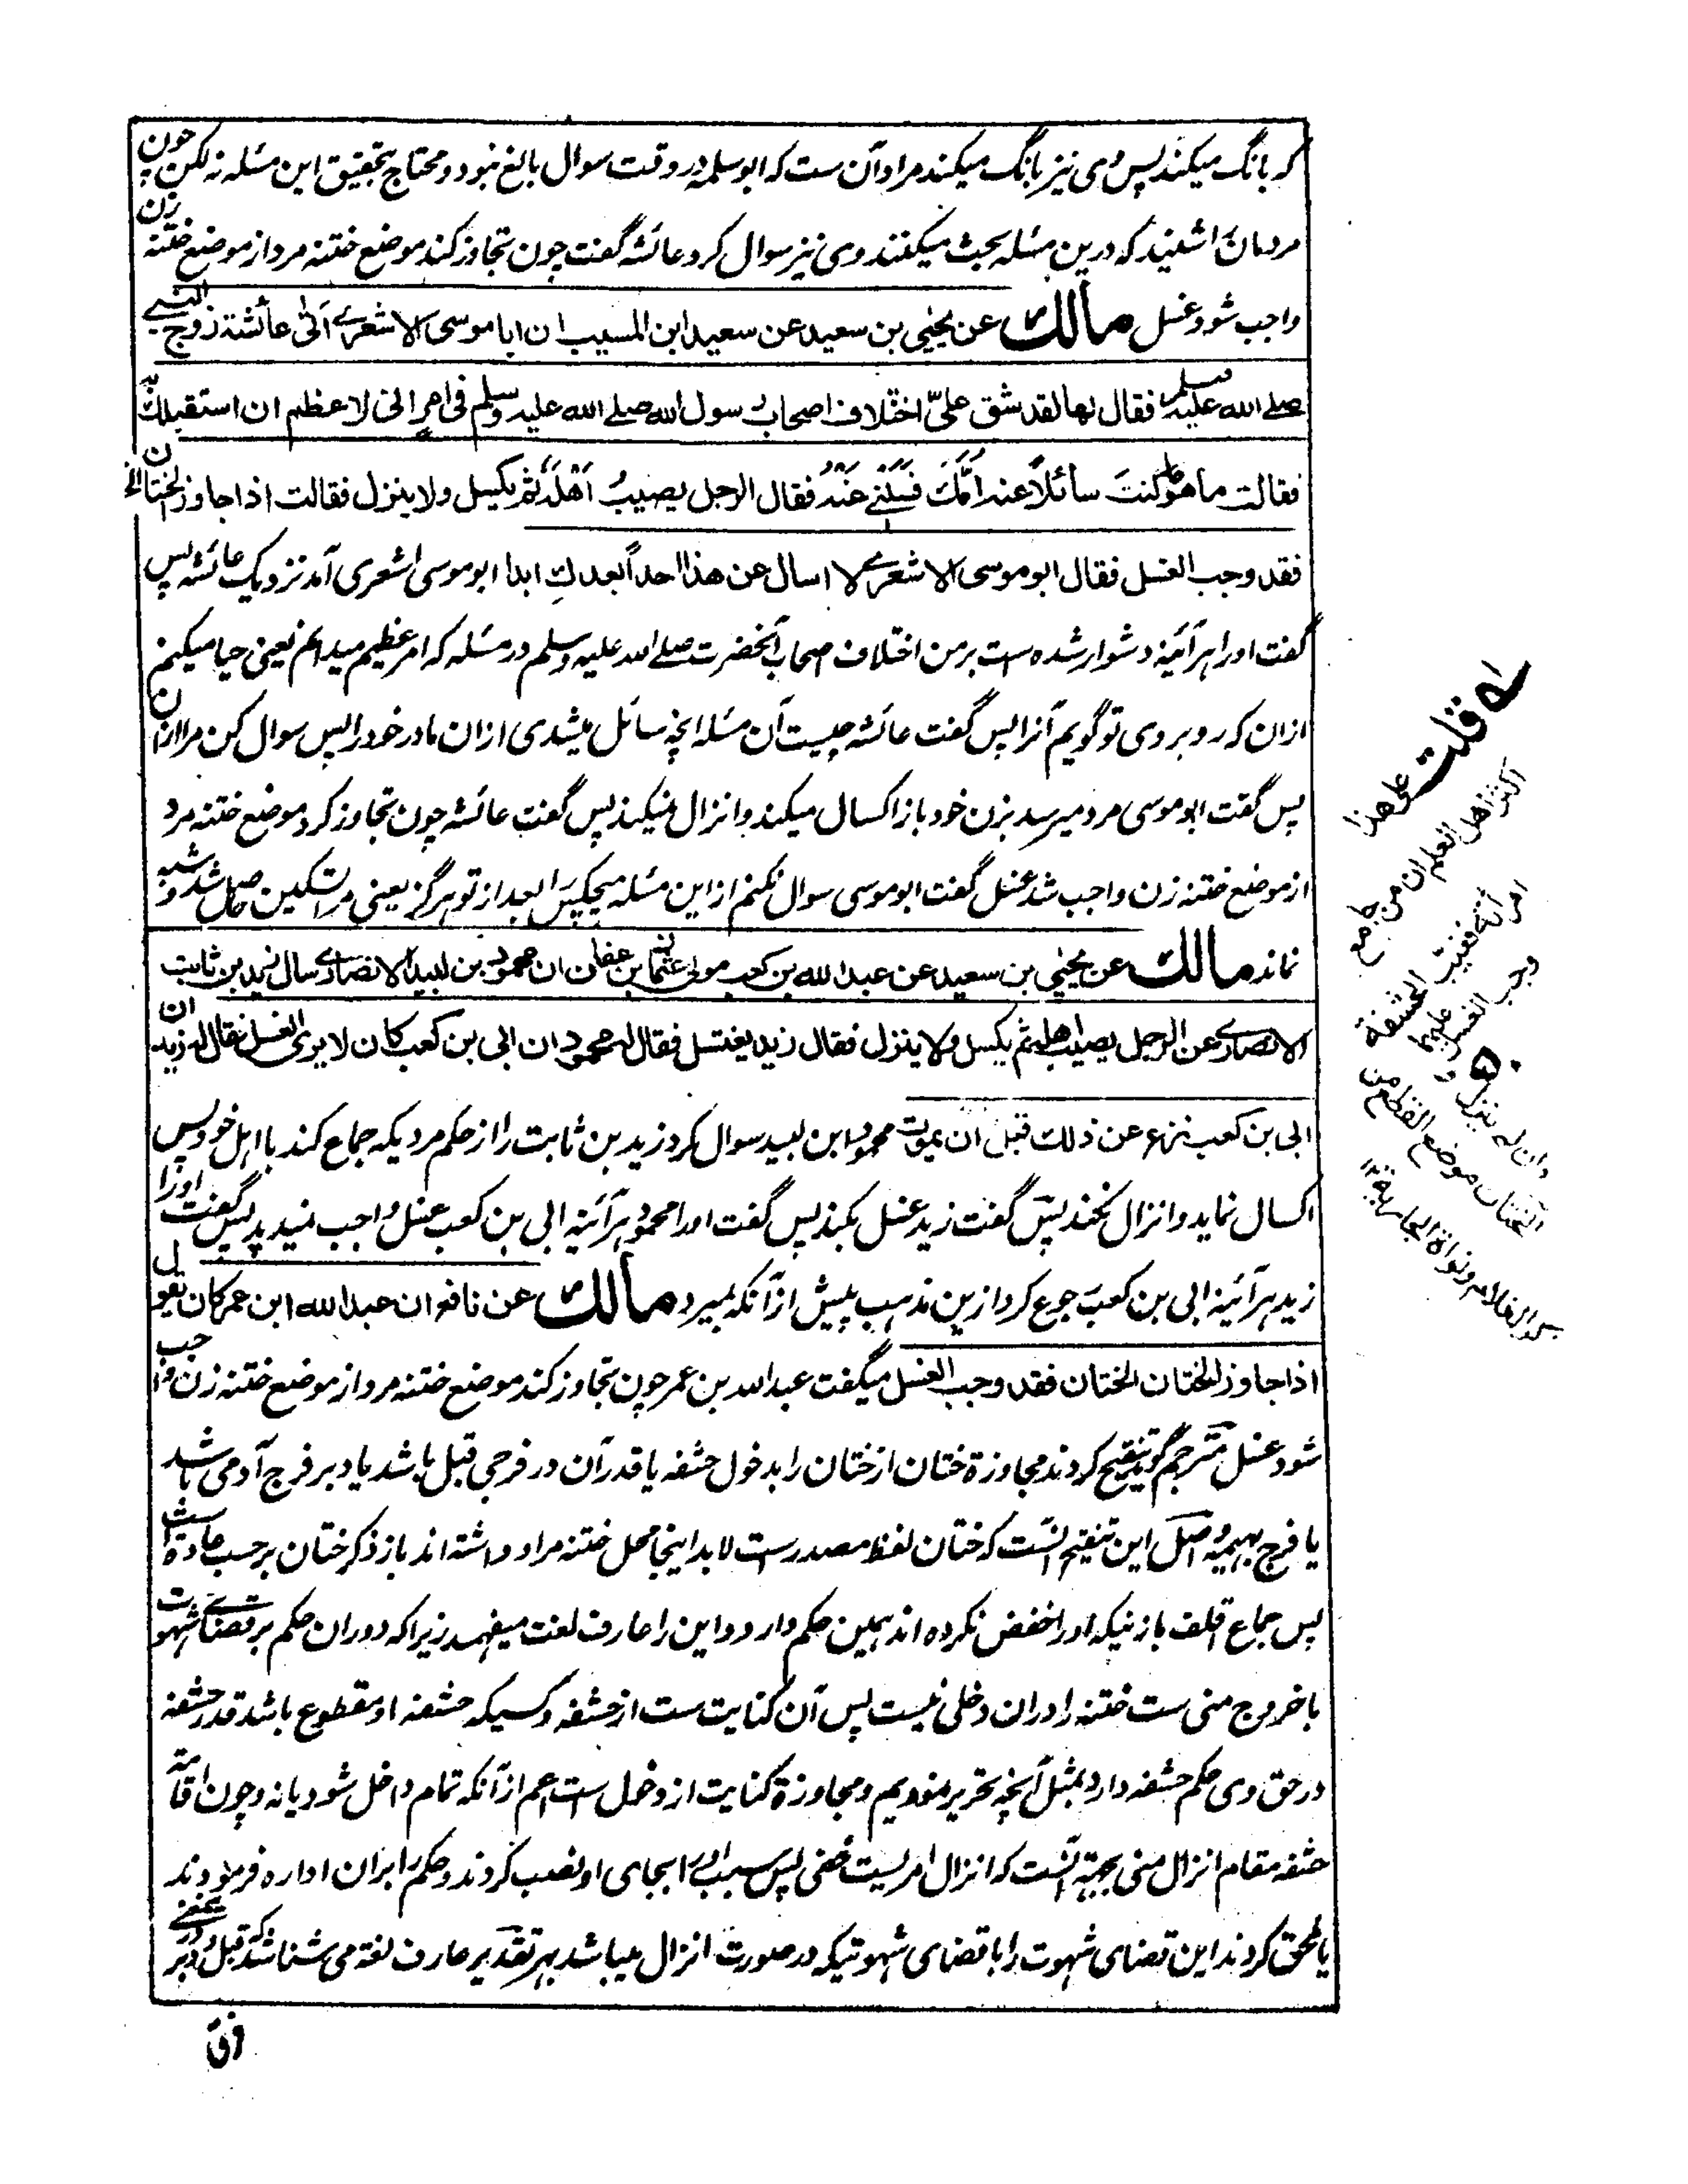 که بانگ میکنند پس وی نیز بانگ میکند مراد آن ست که ابو سلمه در وقت سوال بالغ نبود و محتاج بتحقیق این مسئله نه لکن چون
مردمان را شنید که درین مسئله بحث میکنند وی نیز سوال کرد عائشه گفت چون تجاوز کند موضع ختنه مرد از موضع ختنه زن
واجب شود غسل مالك عن يحيى بن سعيد عن سعيد ابن المسيب ان ابا موسى الاشعرى اتى عائشة زوج النبى
صلى الله عليه وسلم فقال لها لقد شق علىّ اختلاف اصحاب رسول الله صلى الله عليه وسلم فى امر انى لاعظم ان استقبلك به
فقالت ما هو ما كنتَ سائلاً عنه امَّكَ فَسَلْنِى عَنْهُ فقال الرجل يصيبُ اَهْلَهُ ثم يكسل ولا ينزل فقالت اذا جاوز الختان الختان
فقد وجب الغسل فقال ابو موسى الاشعرى لا اسال عن هذا احداً بعدكِ ابدا ابو موسی اشعری آمد نزدیک عائشه پس
گفت او را هر آئینه دشوار شده ست بر من اختلاف اصحاب آنحضرت صلے الله علیه وسلم در مسئله که امر عظیم میدانم یعنی حیا میکنم
ازان که روبروی تو گویم آنرا پس گفت عائشه چیست آن مسئله انچه سائل میشدی ازان مادر خود را پس سوال کن مرا ازان
پس گفت ابو موسی مرد میرسد بزن خود باز اکسال میکند و انزال نمیکند پس گفت عائشه چون تجاوز کرد موضع ختنه مرد
از موضع ختنه زن واجب شد غسل گفت ابو موسی سوال نکنم از این مسئله هیچکس را بعد از تو هرگز یعنی مرا تسکین حاصل شد و شبه
نماند مالك عن يحيى بن سعيد عن عبد الله بن كعب مولى عثمان بن عفان ان محمود بن لبيد الانصارى سال زيد بن ثابت
الانصارى عن الرجل يصيب اهله ثم يكسل ولا ينزل فقال زيد يغتسل فقال له محمود ان ابى بن كعب كان لا يرى الغسل فقال له زيد ان
ابى بن كعب نزع عن ذلك قبل ان يموت محمود ابن لبید سوال کرد زید بن ثابت را از حکم مردیکه جماع کند با اهل خود پس
اکسال نماید و انزال نکند پس گفت زید غسل بکند پس گفت او را محمود هر آئینه ابی بن کعب غسل واجب نمیدید پس گفت او را
زید هر آئینه ابی بن کعب رجوع کرد ازین مذهب پیش از آنکه بمیرد مالك عن نافع ان عبد الله ابن عمر كان يقول
اذا جاوز الختان الختان فقد وجب الغسل میگفت عبد الله بن عمر چون تجاوز کند موضع ختنه مرد از موضع ختنه زن واجب
شود غسل مترجم گوید تنقیح کردند مجاوزة ختان از ختان را بدخول حشفه یا قدر آن در فرجی قبل باشد یا دبر فرج آدمی باشد
یا فرج بهیمه و اصل این تنقیح آنست که ختان لفظ مصدر ست لابد اینجا محل ختنه مراد داشته اند باز ذکر ختان بر حسب عادة است
پس جماع اقلف با زنیکه او را خفض نکرده اند همین حکم دارد و این را عارف لغت میفهمد زیرا که دوران حکم بر قضای شهوت
با خروج منی ست ختنه را دران دخلی نیست پس آن کنایت ست از حشفه و کسیکه حشفه او مقطوع باشد قدر حشفه
در حق وی حکم حشفه دارد بمثل آنچه تحریر نمودیم و مجاوزة کنایت از دخول ست اعم از آنکه تمام داخل شود یا نه و چون اقامة
حشفه مقام انزال منی بجهة آنست که انزال امریست خفی پس سبب او را بجای او نصب کردند و حکم را بران اداره فرمودند
یا ملحق کردند این قضای شهوت را با قضای شهوتیکه در صورت انزال میباشد بهر تقدیر عارف لغة می شناسد که قبل و دبر در معنی
فرق
له قلت على هذا
اكثر اهل العلم ان من جامع
امرأته فغيب الحشفة
وجب الغسل عليهما
وان لم ينزل و
الختان موضع القطع من
ذكر الغلام ونواة الجارية ١٢